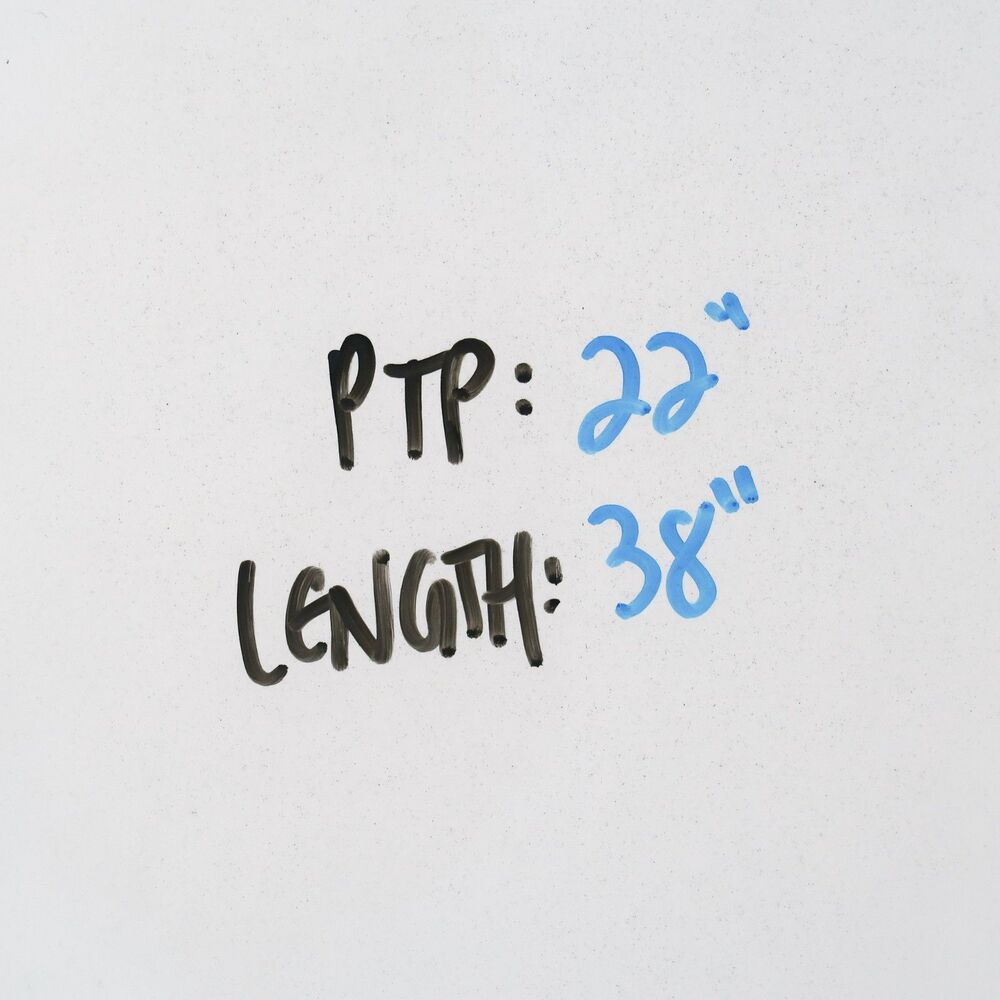 PTP: 22"
LENGTH: 38"